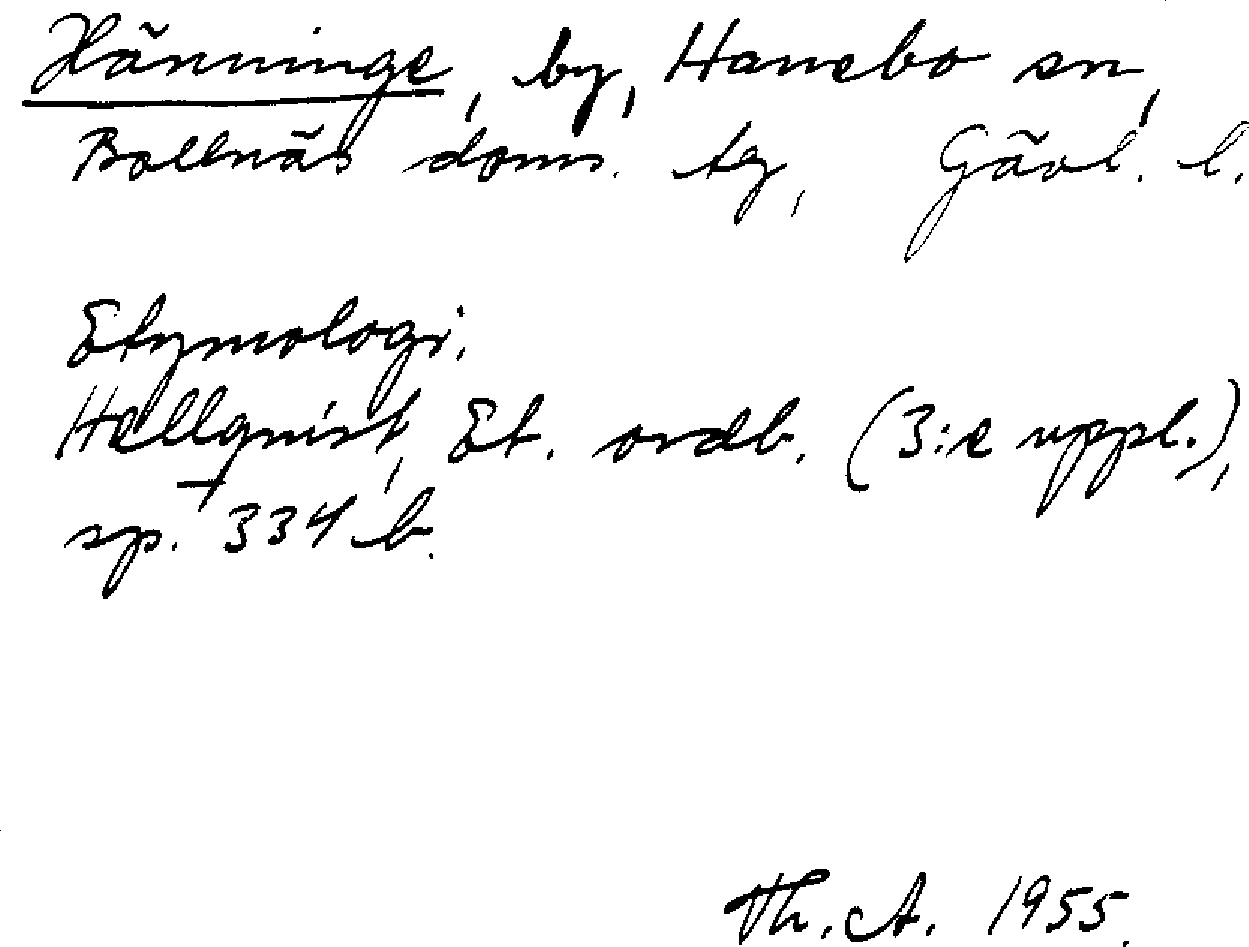 Hänninge, by, Hanebo sn,
Bollnäs doms. tg, Gävl. l.
Etymologi.
Hellquist, Et. ordb. (3:e uppl.),
sp. 334 b.
Th. A. 1955.